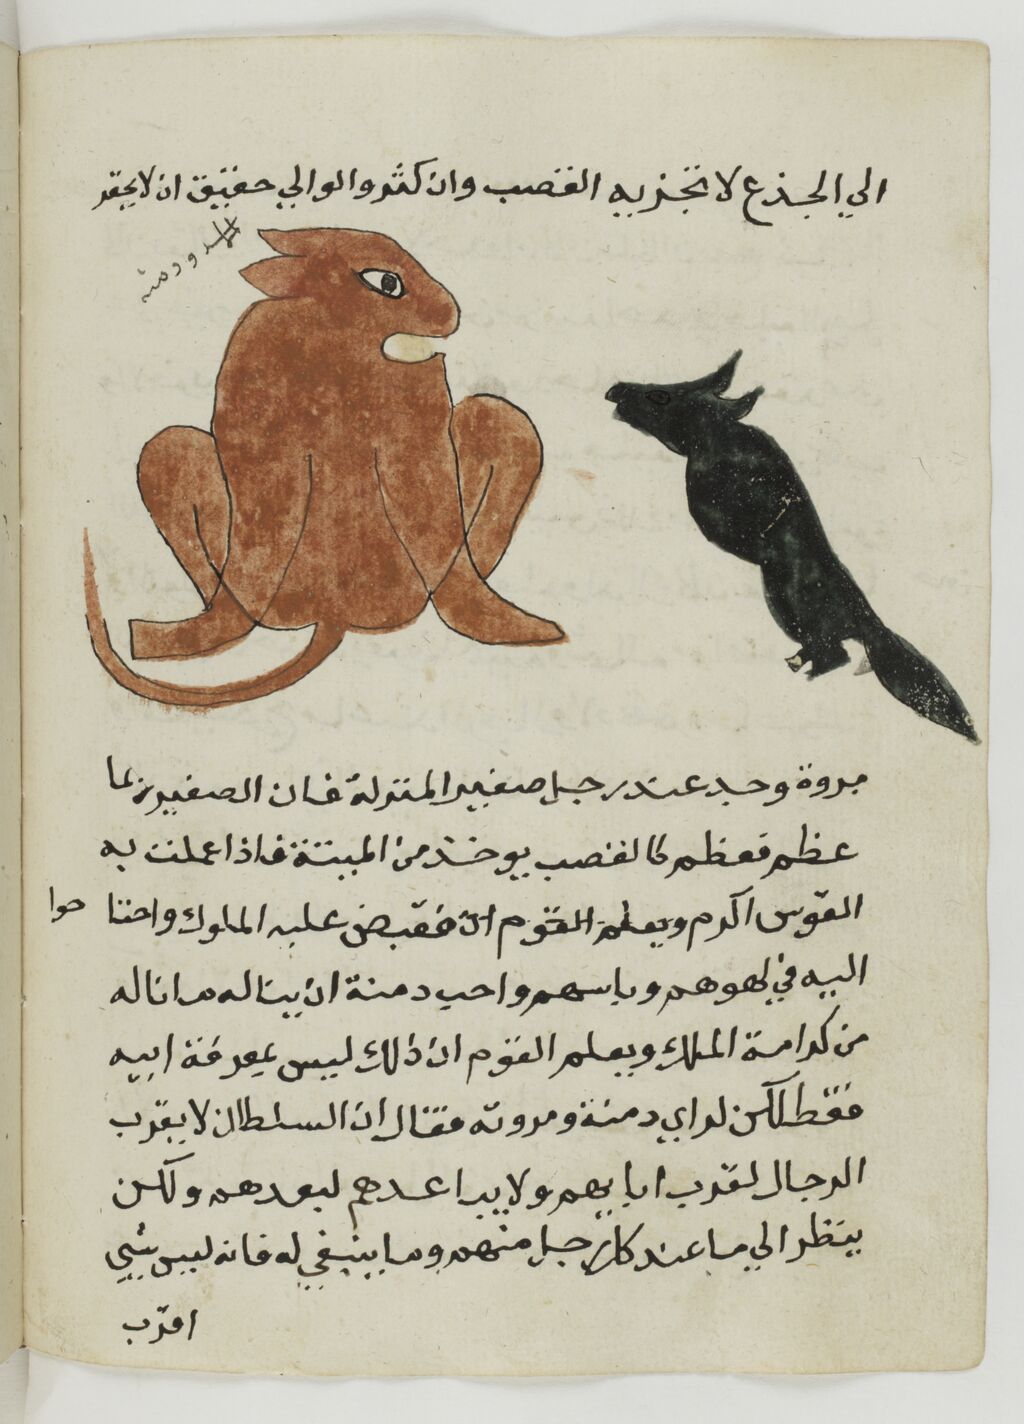 الي الجذع لا تجزيه القصب وان كثر والوالي حقيق ان لا يحقر
الاسد ودمنه
مروة وجد عند رجل صغير المنزلة فان الصغير ربما
عظم فعظم كالقصب يوخذ من الميتة فاذا عملت به
القوس اكرم
ويعلم القوم ان فقبض عليه الملوك واحتا
حوا
اليه في لهوهم وباسهم واحب دمنة ان يناله ما ناله
من كرامة الملك ويعلم القوم ان ذلك ليس بمعرفة ابيه
فقط لكن لراي دمنة ومروته فقال ان السلطان لا يقرب
الرجال لقرب ابايهم ولا يباعدهم لبعدهم ولكن
ينظر الي ما عند كل رجل منهم وما ينبغي له فانه ليس شي
اقرب